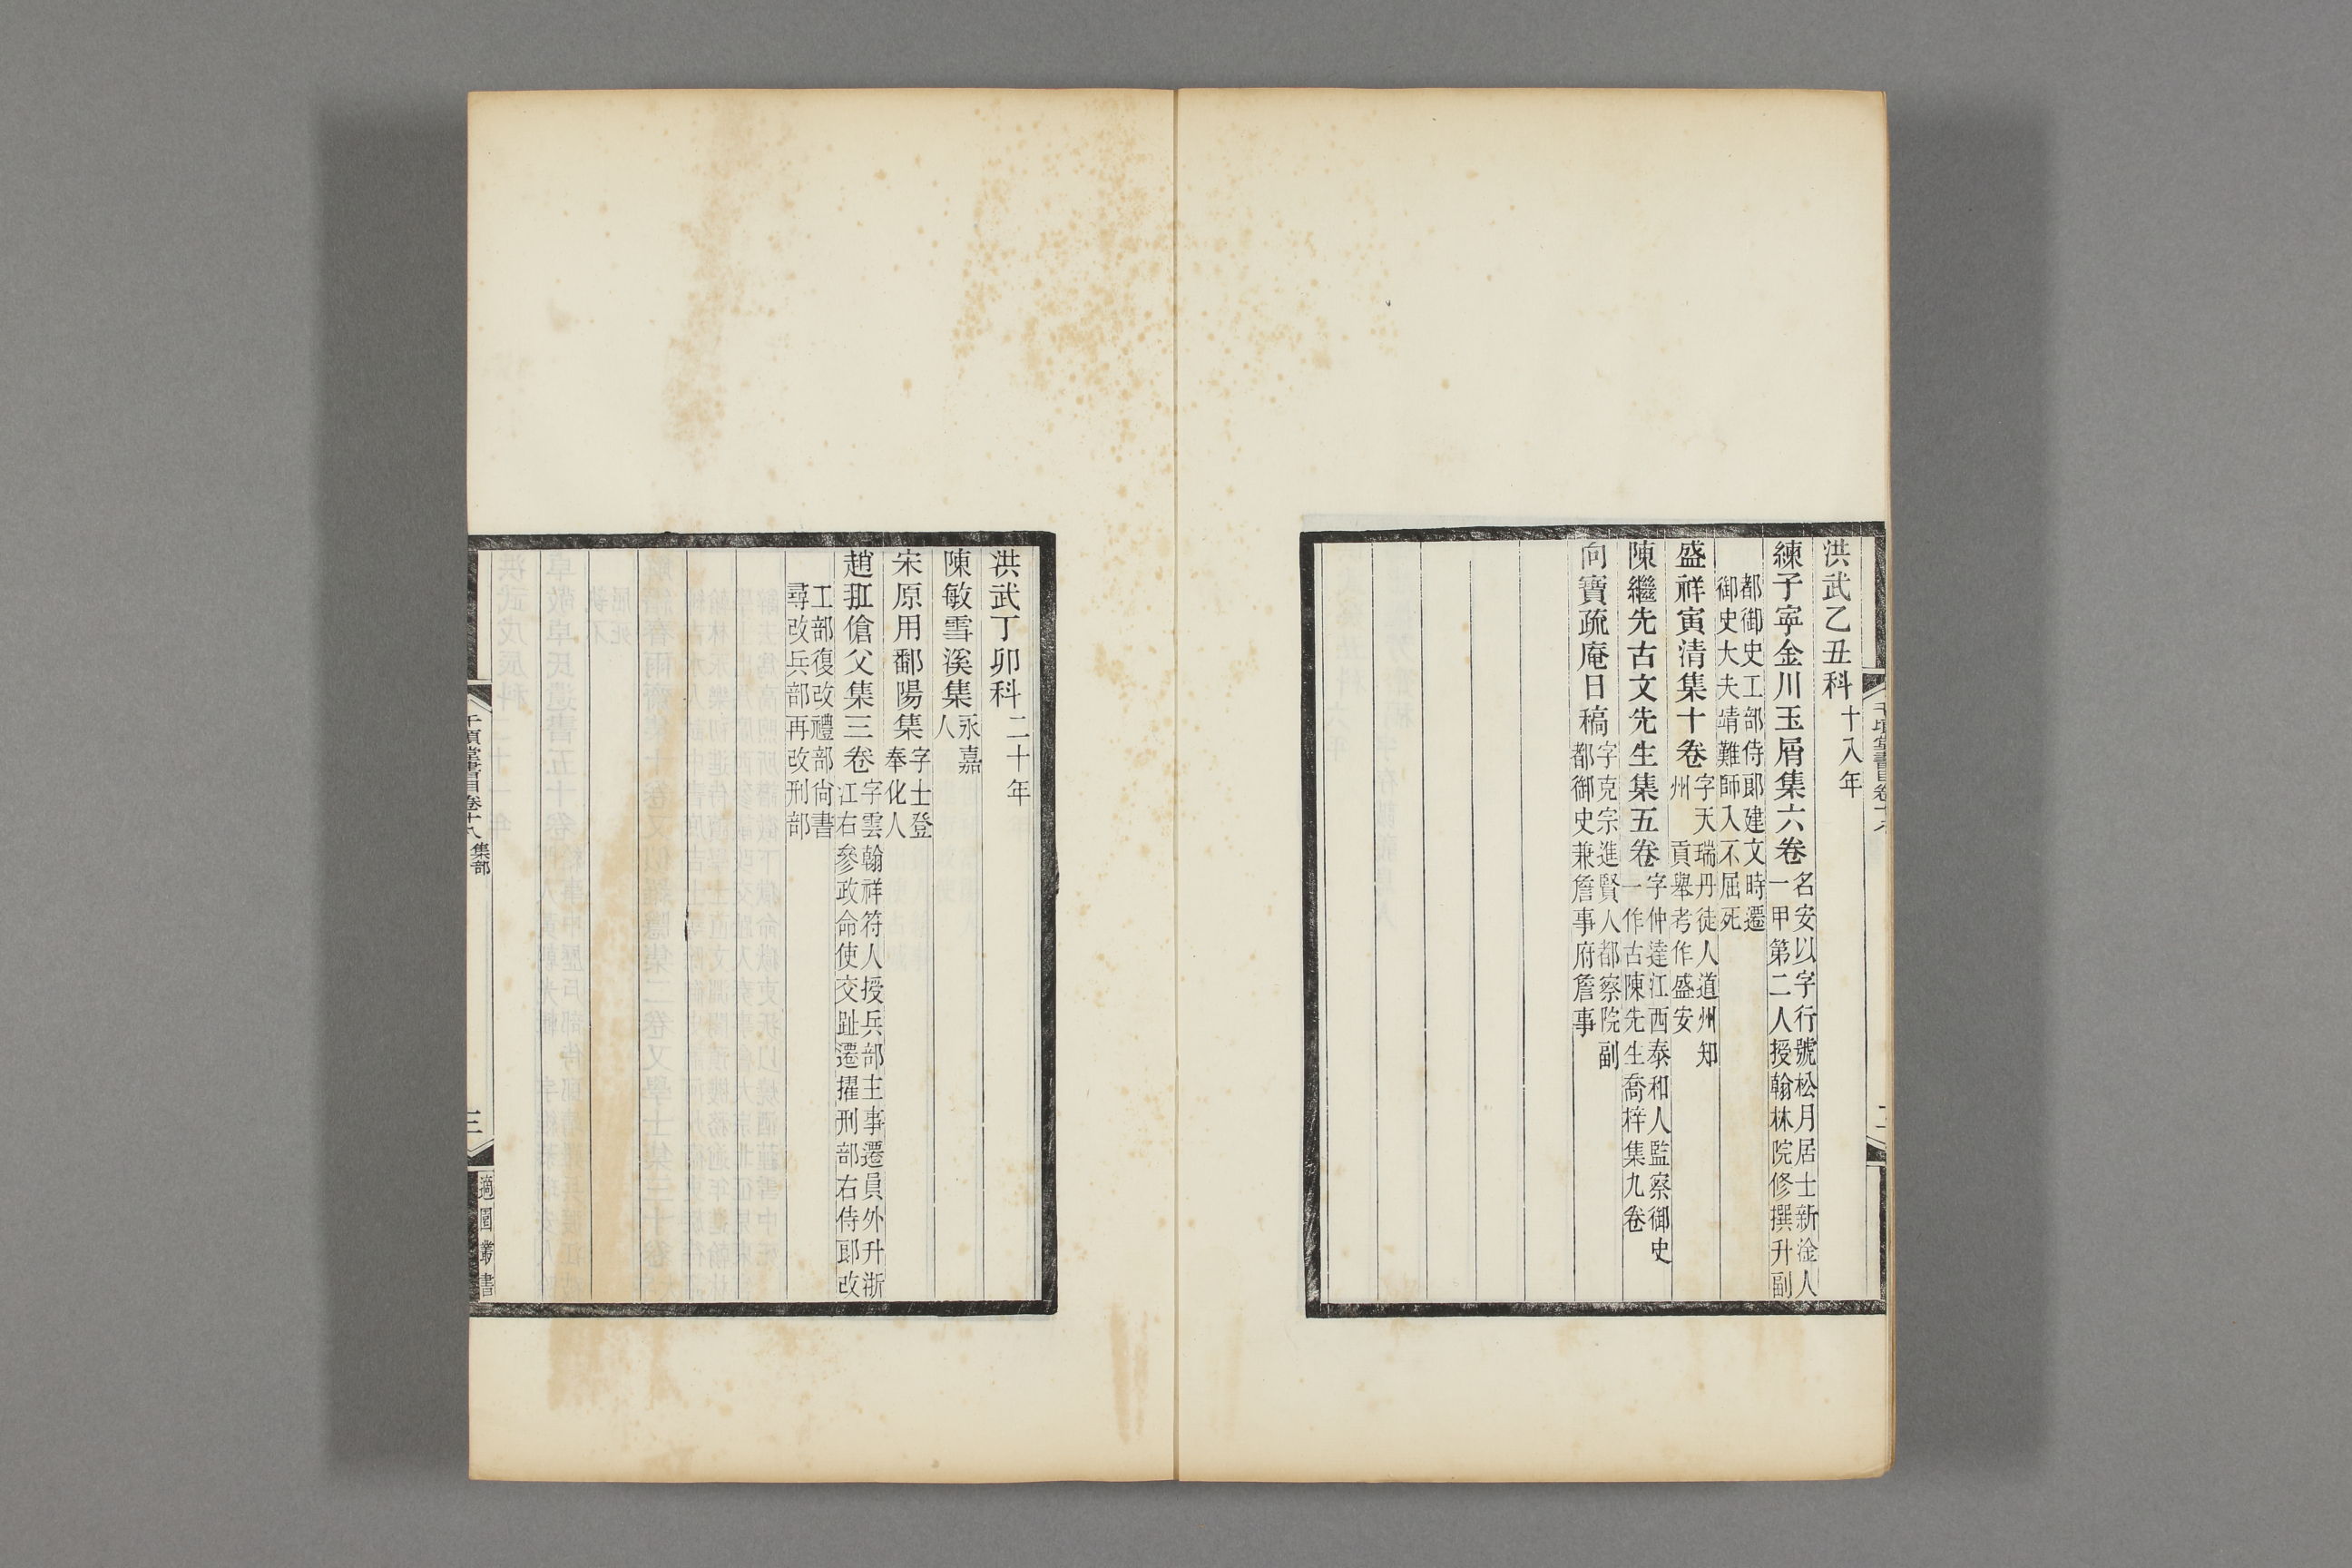 洪武乙丑科十八年
練子寧金川玉屑集六卷名安以字行號松月居士新淦人
一甲第二人授翰林院修撰升副
都御史工部侍郎建文時遷
御史大夫靖難師入不屈死
盛祥寅清集十卷字天瑞丹徒人道州知
州 貢舉考作盛安
陳繼先古文先生集五卷字仲達江西泰和人監察御史
一作古陳先生喬梓集九卷
向寶疏庵日稿字克宗進賢人都察院副
都御史兼詹事府詹事
洪武丁卯科二十年
陳敏雪溪集永嘉
人
宋原用鄱陽集字士登
奉化人
趙羾傖父集三卷字雲翰祥符人授兵部主事遷員外升浙
江右參政命使交趾遷擢刑部右侍郎改
工部復改禮部尚書
尋改兵部再改刑部
千頃堂書目卷十八 集部
三
適園叢書